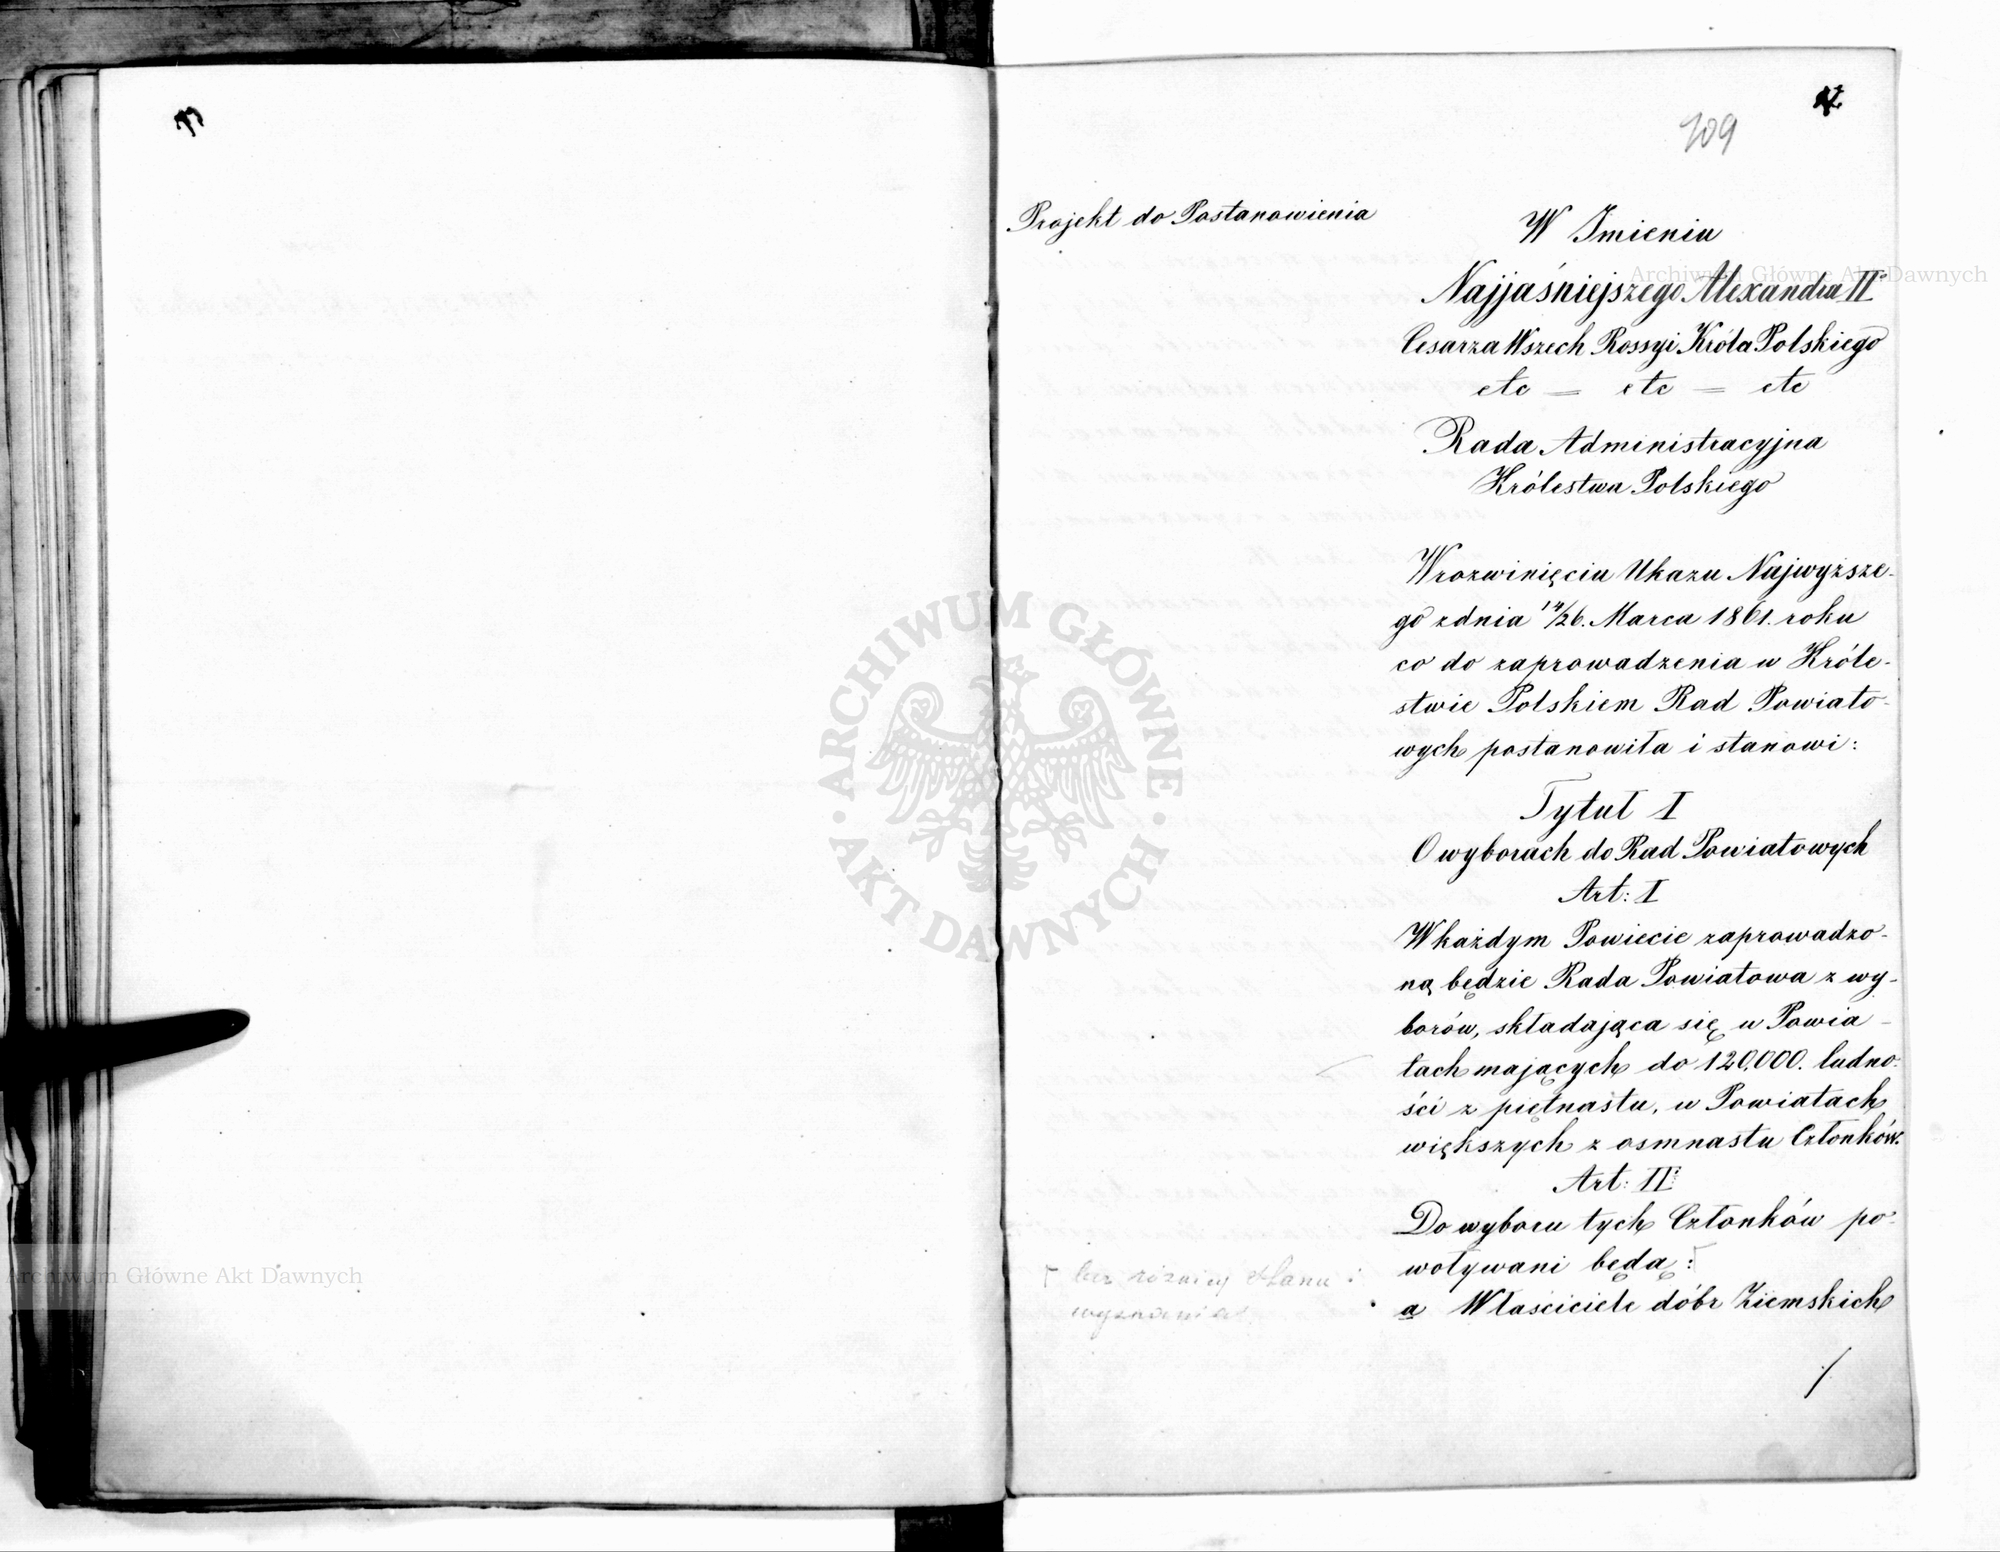 109
Projekt do Postanowienia
W Imieniu
Najjaśniejszego Alexandra II
Cesarza Wszech Rossyi Króla Polskiego
etc = etc = etc
Rada Administracyjna
Królestwa Polskiego
W rozwinięciu Ukazu Najwyższe-
go z dnia 14/26. Marca 1861. roku
co do zaprowadzenia w Króle-
stwie Polskiem Rad Powiato-
wych postanowiła i stanowi:
Tytuł I
O wyborach do Rad Powiatowych
Art: I
W każdym Powiecie zaprowadzo-
ną będzie Rada Powiatowa z wy-
borów, składająca się w Powia-
tach mających do 120,000. ludno-
ści z piętnastu, w Powiatach
większych z osmnastu Członków.
Art: II
Do wyboru tych Członków po-
woływani będą: Γ
a Właściciele dóbr Ziemskich
Γ bez różnicy stanu i
wyznania
/
ARCHIWUM GŁÓWNE
AKT DAWNYCH
Archiwum Główne Akt Dawnych
Archiwum Główne Akt Dawnych